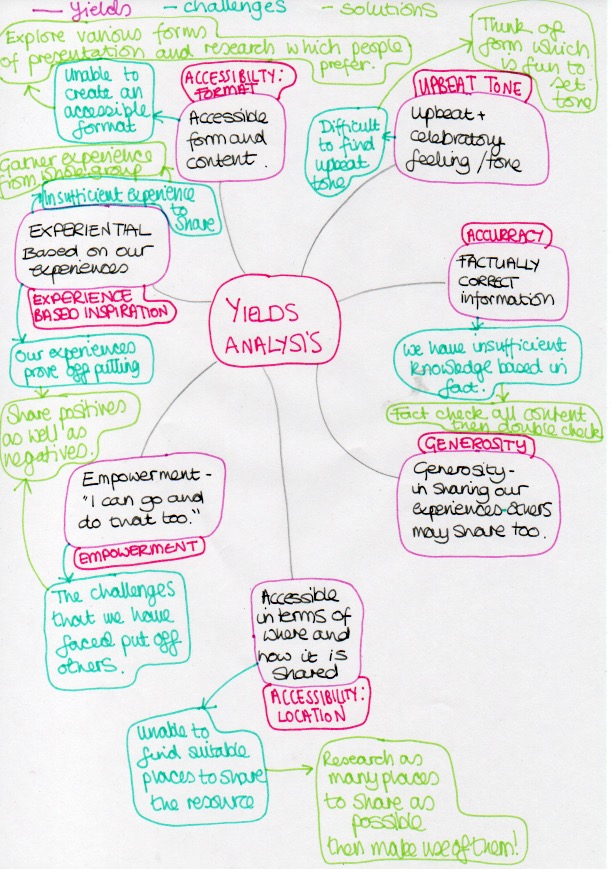 — Yields - challenges - solutions
Explore various forms
of presentation and research which people
prefer.
Unable to
create an
accessible
format
ACCESSIBILTY:
FORMAT
Accessible
form and
content.
Think of
form which
is fun to
set
tone
UPBEAT TONE
upbeat +
celebratory
feeling / tone
Difficult
to find
upbeat
tone
Gather experience
from whole group
Insufficient experience
to
share
EXPERIENTIAL
Based on our
experiences
EXPERIENCE
BASED INSPIRATION
Our experiences
prove off putting
Share positives
as well as
negatives.
YIELDS
ANALYSIS
ACCURRACY
FACTUALLY
CORRECT
information
we have insufficient
knowledge based in
fact.
Fact check all content
then double check
GENEROSITY
Generosity-
in sharing our
experiences-others
may share too.
Empowerment -
"I can go and
do that too."
EMPOWERMENT
The challenges
that we have
faced put off
others.
Accessible
in terms of
where and
how it is
shared
ACCESSIBILITY:
LOCATION
Unable to
find suitable
places to share
the resource
Research as
many places
to share as
possible
then make use of them!